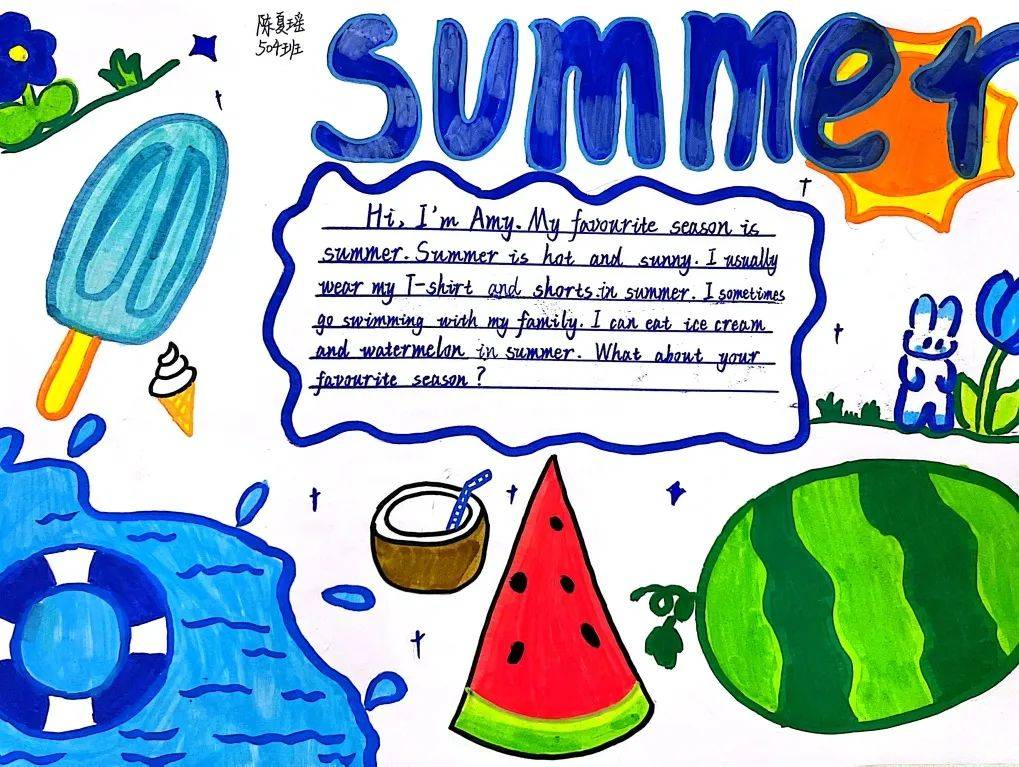 陈夏瑶
504班
summer
Hi, I'm Amy. My favourite season is
summer. Summer is hot and sunny. I usually
wear my T-shirt and shorts in summer. I sometimes
go swimming with my family. I can eat ice cream
and watermelon in summer. What about your
favourite season?